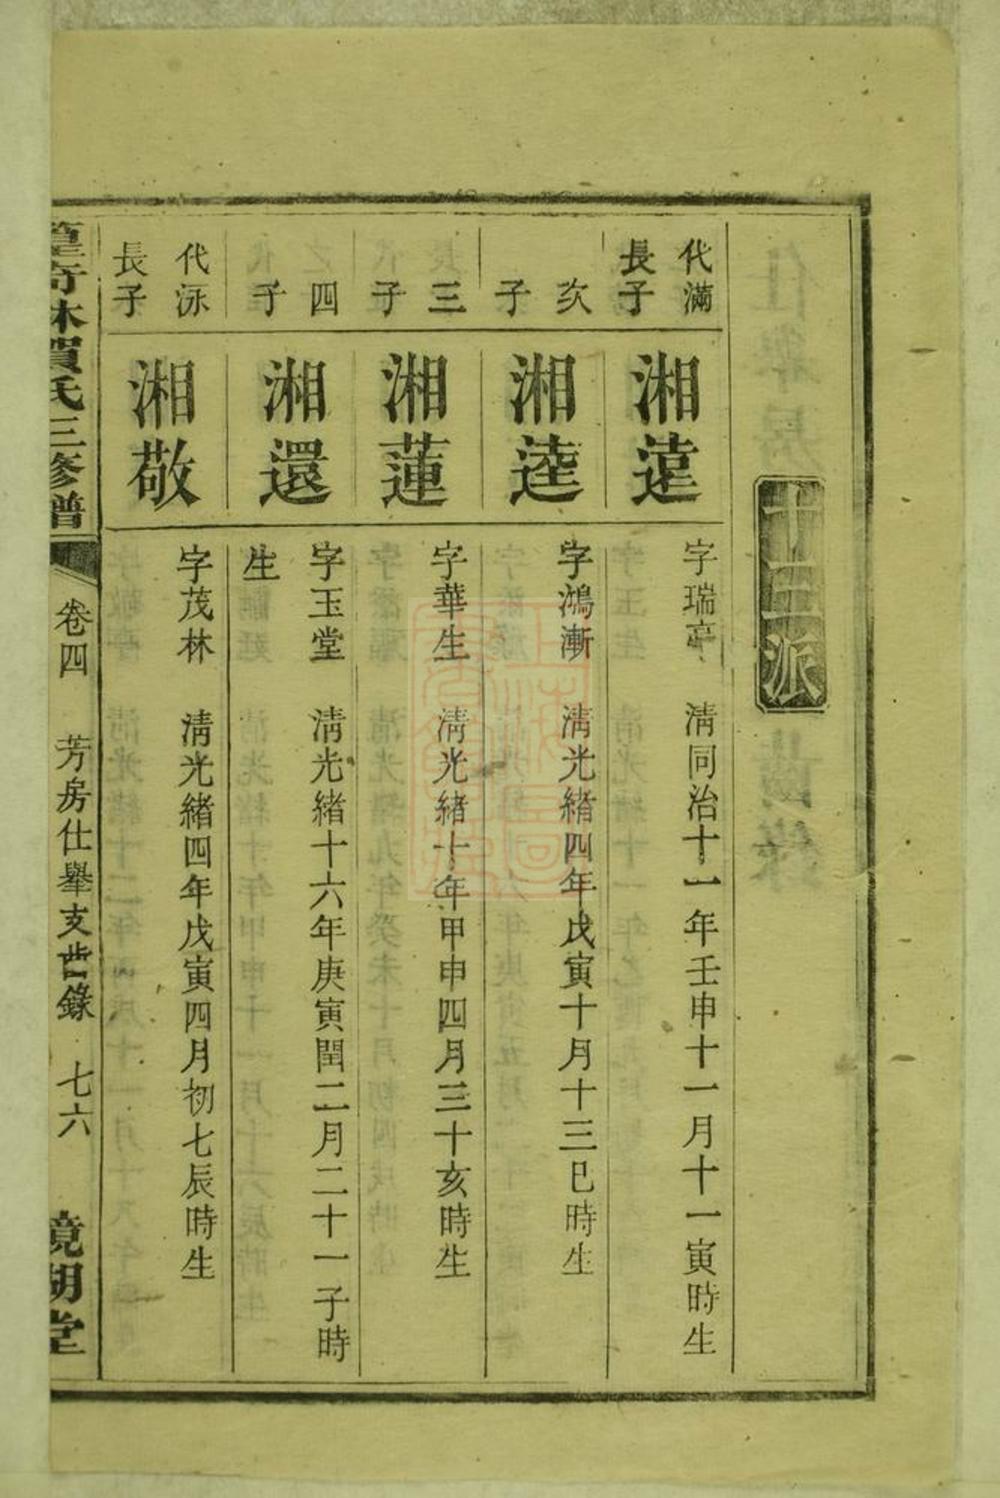 十三派
代滿長子
湘遠
字瑞亭 清同治十一年壬申十一月十一寅時生
次子
湘逵
字鴻漸 清光緒四年戊寅十月十三巳時生
三子
湘蓮
字華生 清光緒十年甲申四月三十亥時生
四子
湘還
字玉堂 清光緒十六年庚寅閏二月二十一子時
生
代泳長子
湘敬
字茂林 清光緒四年戊寅四月初七辰時生
林賀氏三修譜 卷四 芳房仕舉支齒錄 七六 鏡湖堂